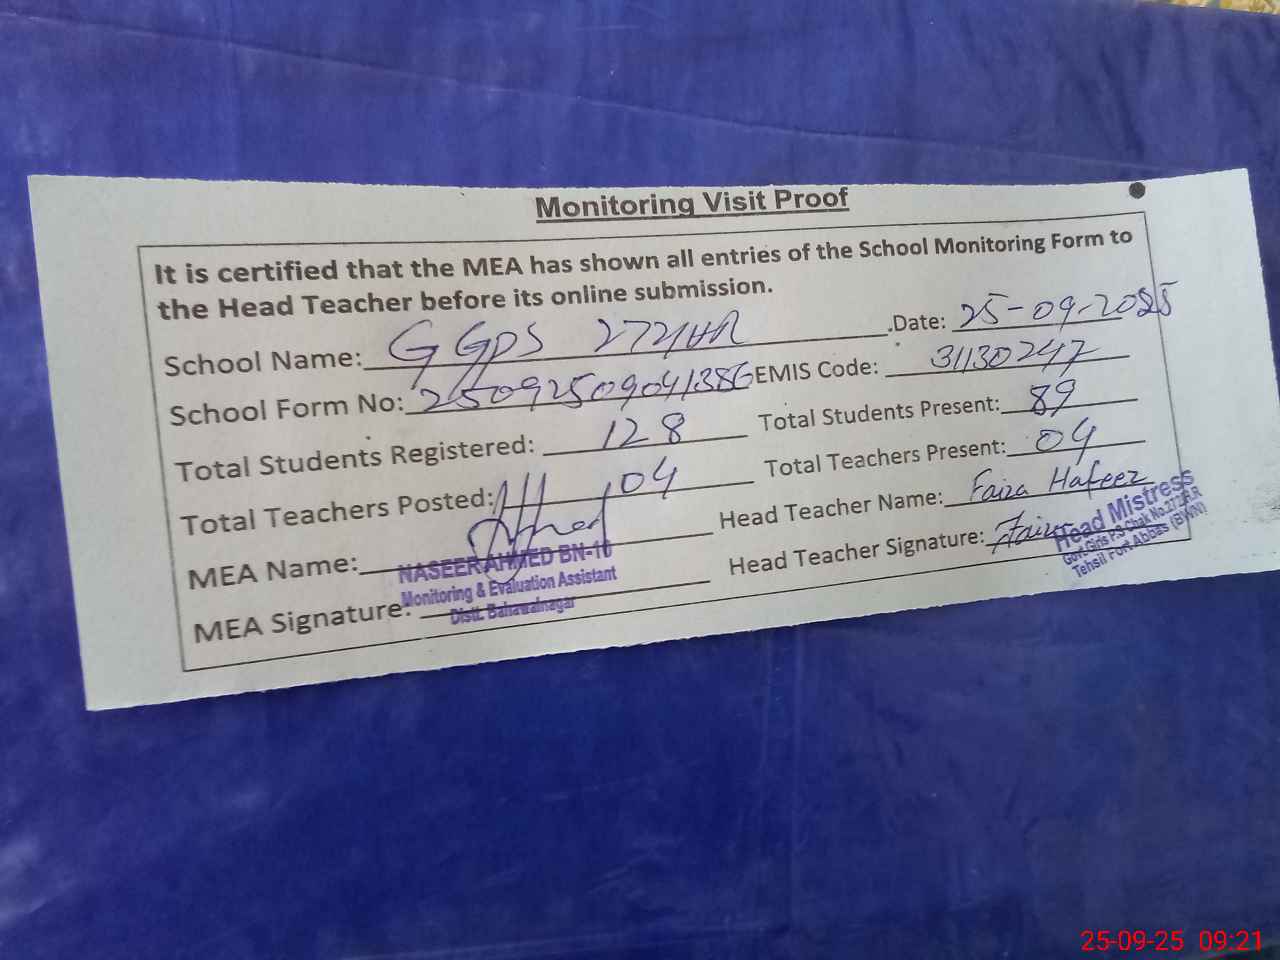 Monitoring Visit Proof
It is certified that the MEA has shown all entries of the School Monitoring Form to
the Head Teacher before its online submission.
School Name: GGPS 272/HR .Date: 25-09-2025
School Form No: 25092509041386 EMIS Code: 31130247
Total Students Registered: 128 Total Students Present: 89
Total Teachers Posted: 04 Total Teachers Present: 04
MEA Name: Head Teacher Name: Faiza Hafeez
MEA Signature: Head Teacher Signature: Faiza
NASEER AHMED BN-16
Monitoring & Evaluation Assistant
Distt. Bahawalnagar
Head Mistress
Govt. Girls P.S Chak No.272/H.R
Tehsil Fort Abbas (BWN)
25-09-25 09:21